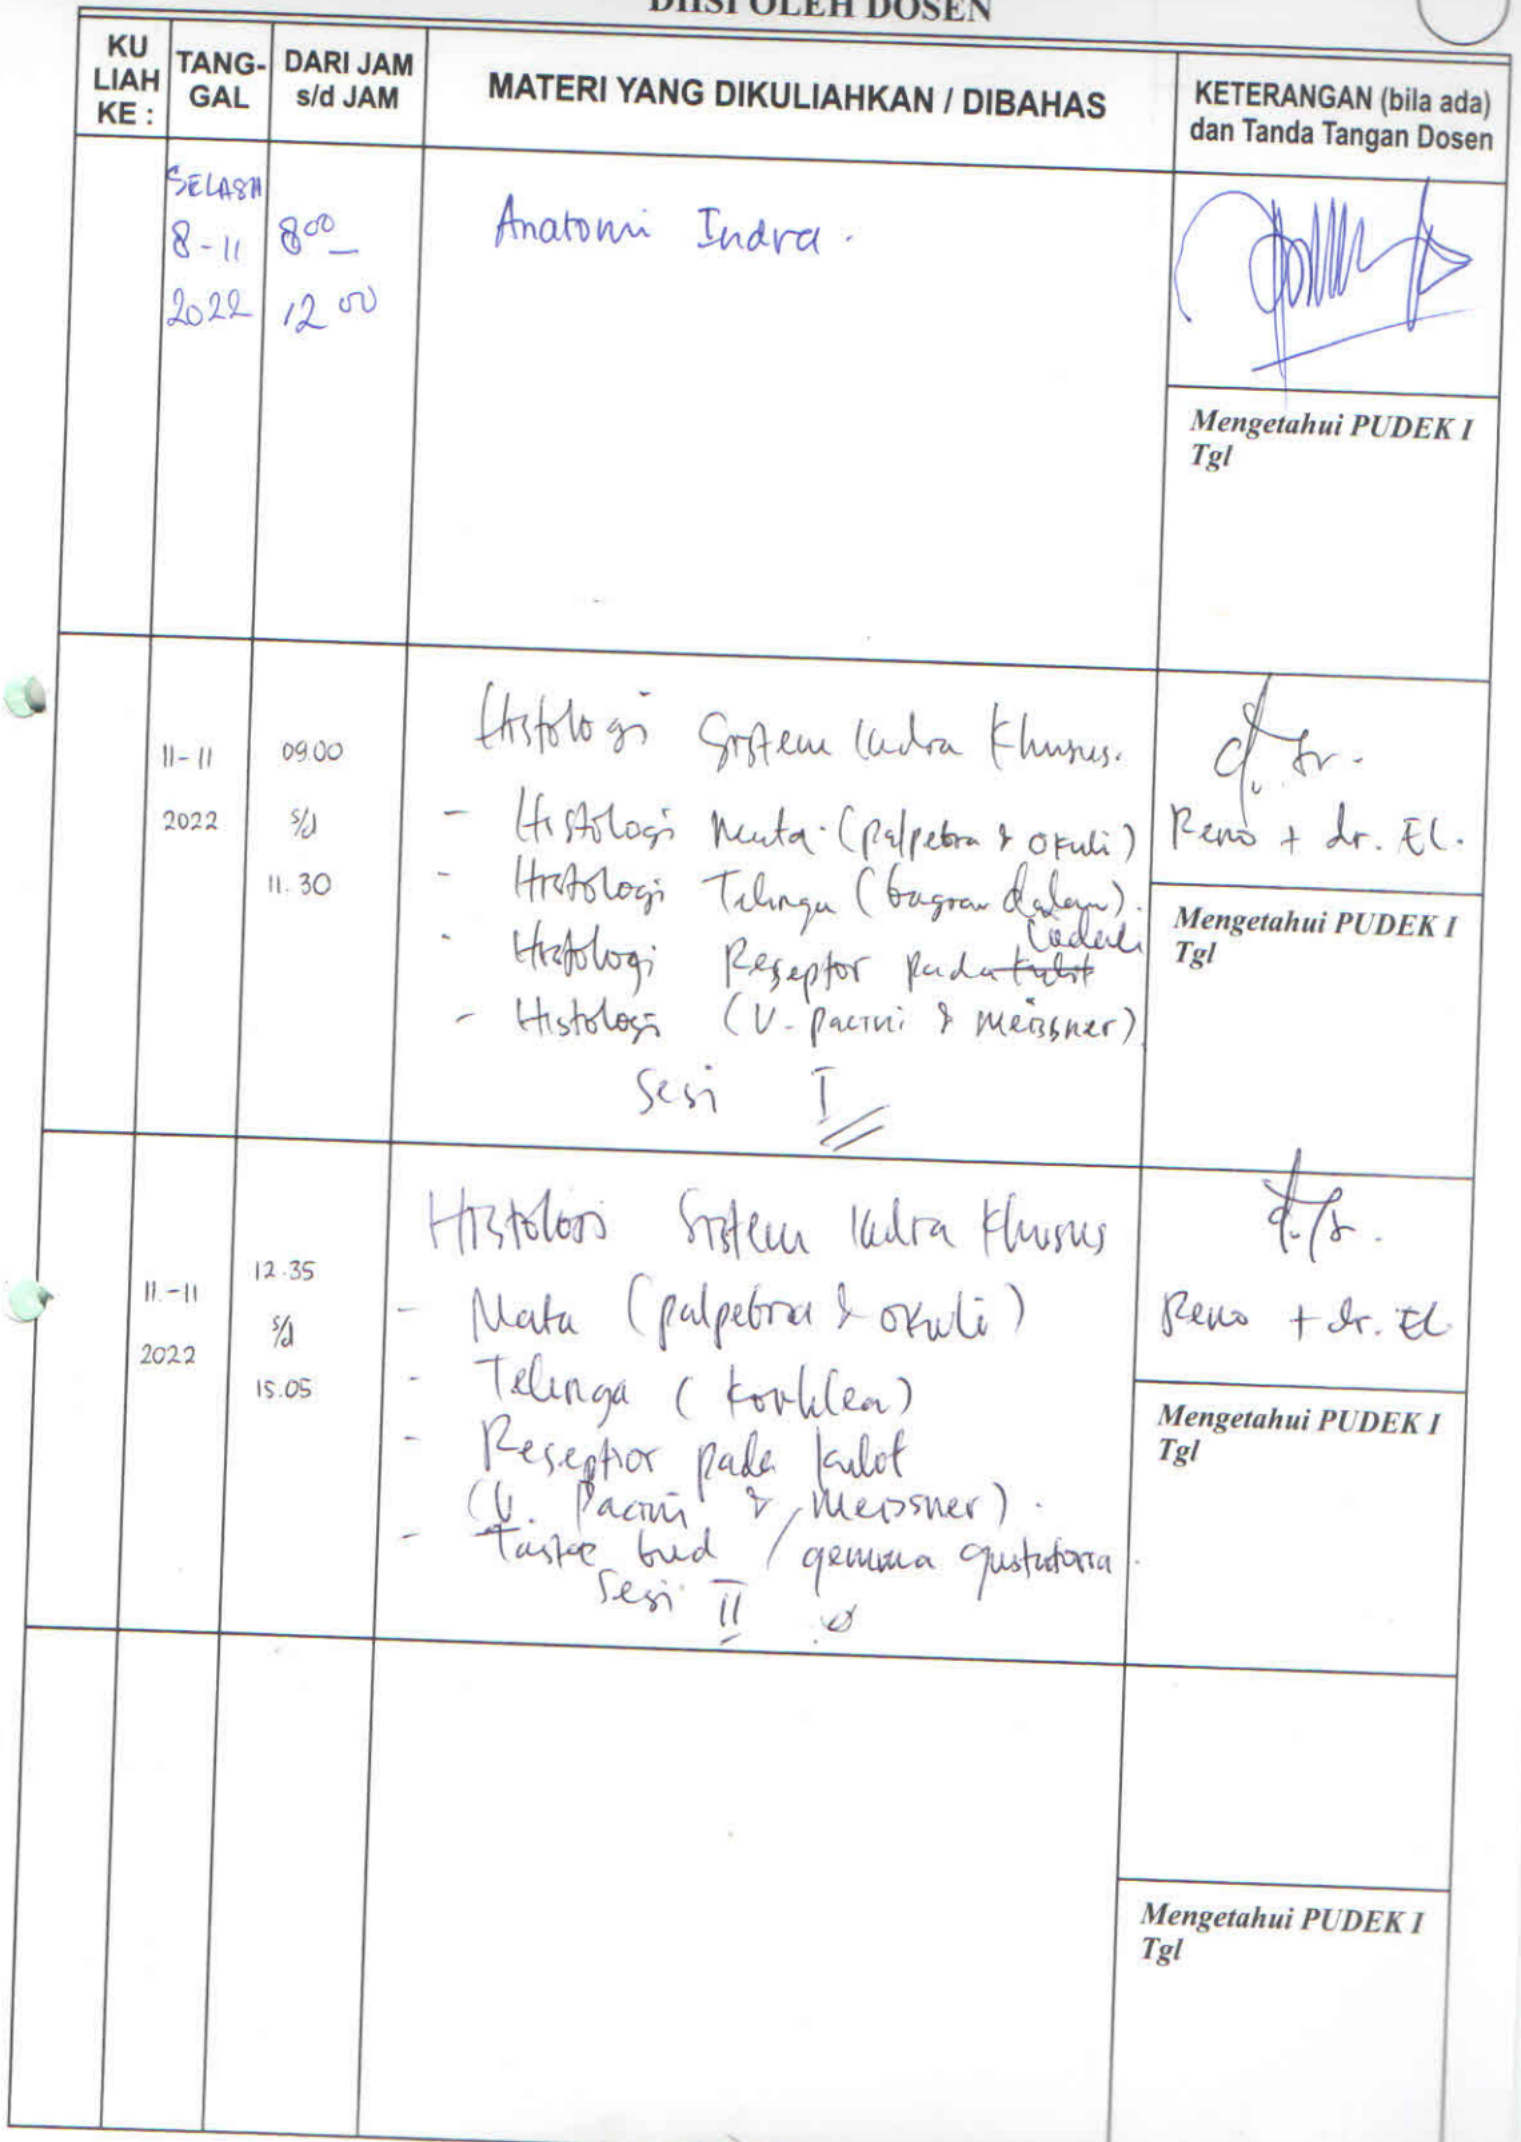 DIISI OLEH DOSEN
KU LIAH KE :
TANG-GAL
DARI JAM s/d JAM
MATERI YANG DIKULIAHKAN / DIBAHAS
KETERANGAN (bila ada) dan Tanda Tangan Dosen
SELASA
8-11
2022
8 00 –
12 00
Anatomi Indra.
Mengetahui PUDEK I
Tgl
11-11
2022
09.00
s/d
11.30
Histologi Sistem Indra Khusus.
- Histologi Mata (palpebra & okuli)
- Histologi Telinga (bagian dalam).
- Histologi Reseptor pada kulit
- Histologi (V. pacini & meissner)
Sesi I
Reno + dr. El.
Mengetahui PUDEK I
Tgl
11-11
2022
12.35
s/d
15.05
Histologi Sistem Indra Khusus
- Mata (palpebra & okuli)
- Telinga (
- Reseptor pada kulit
(V. Pacini & Meissner).
- Taste bud / gemma gustatoria.
Sesi II
Reno + dr. El
Mengetahui PUDEK I
Tgl
Mengetahui PUDEK I
Tgl